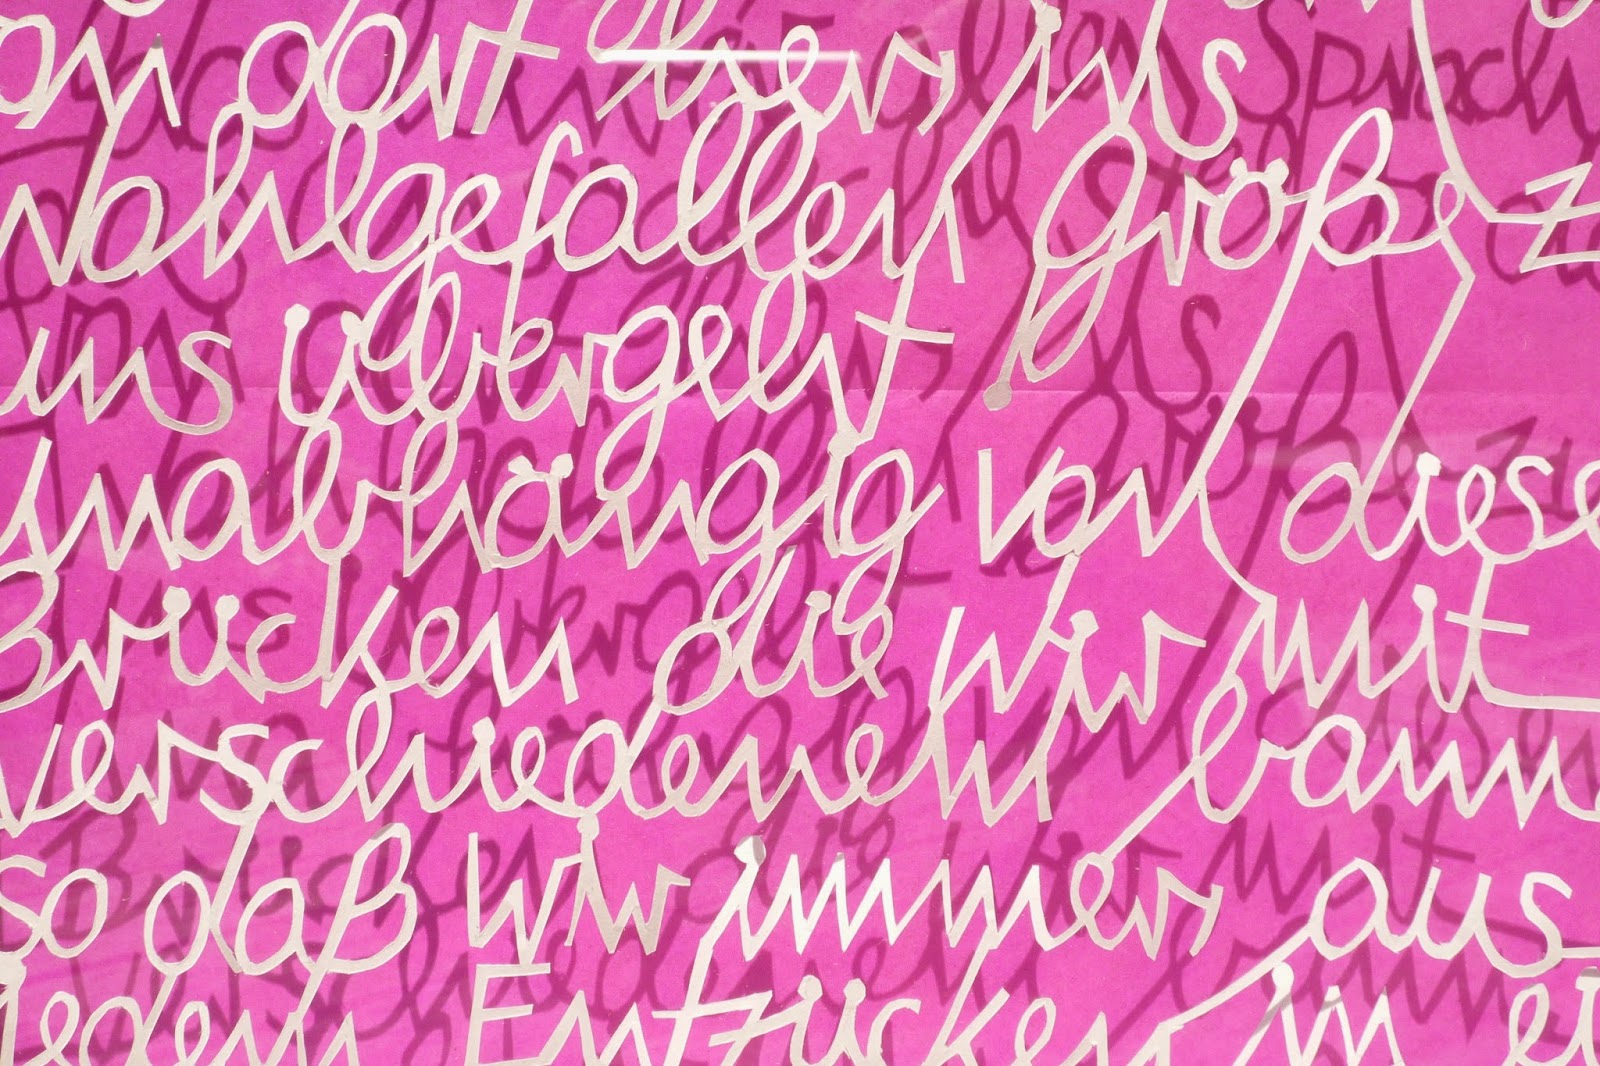 dort
wohlgefallen größe z
uns übergeht
unabhängig von diese
Brücken die wir mit
verschiedenen bann
so daß wir immer aus
jedem Entzücken in ei